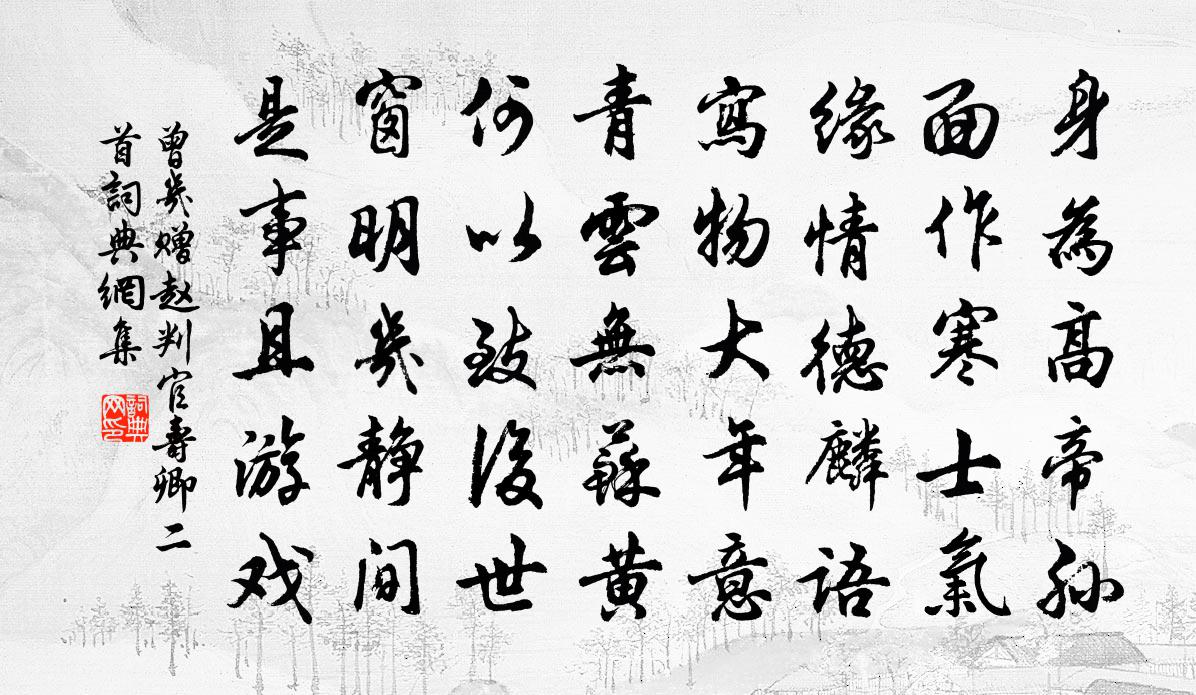 身為高帝孫
面作寒士氣
緣情德麟語
寫物大年意
青雲無蘇黃
何以致後世
窗明幾靜間
是事且游戏
曾幾赠赵判官壽卿二
首詞典網集
詞典
网印